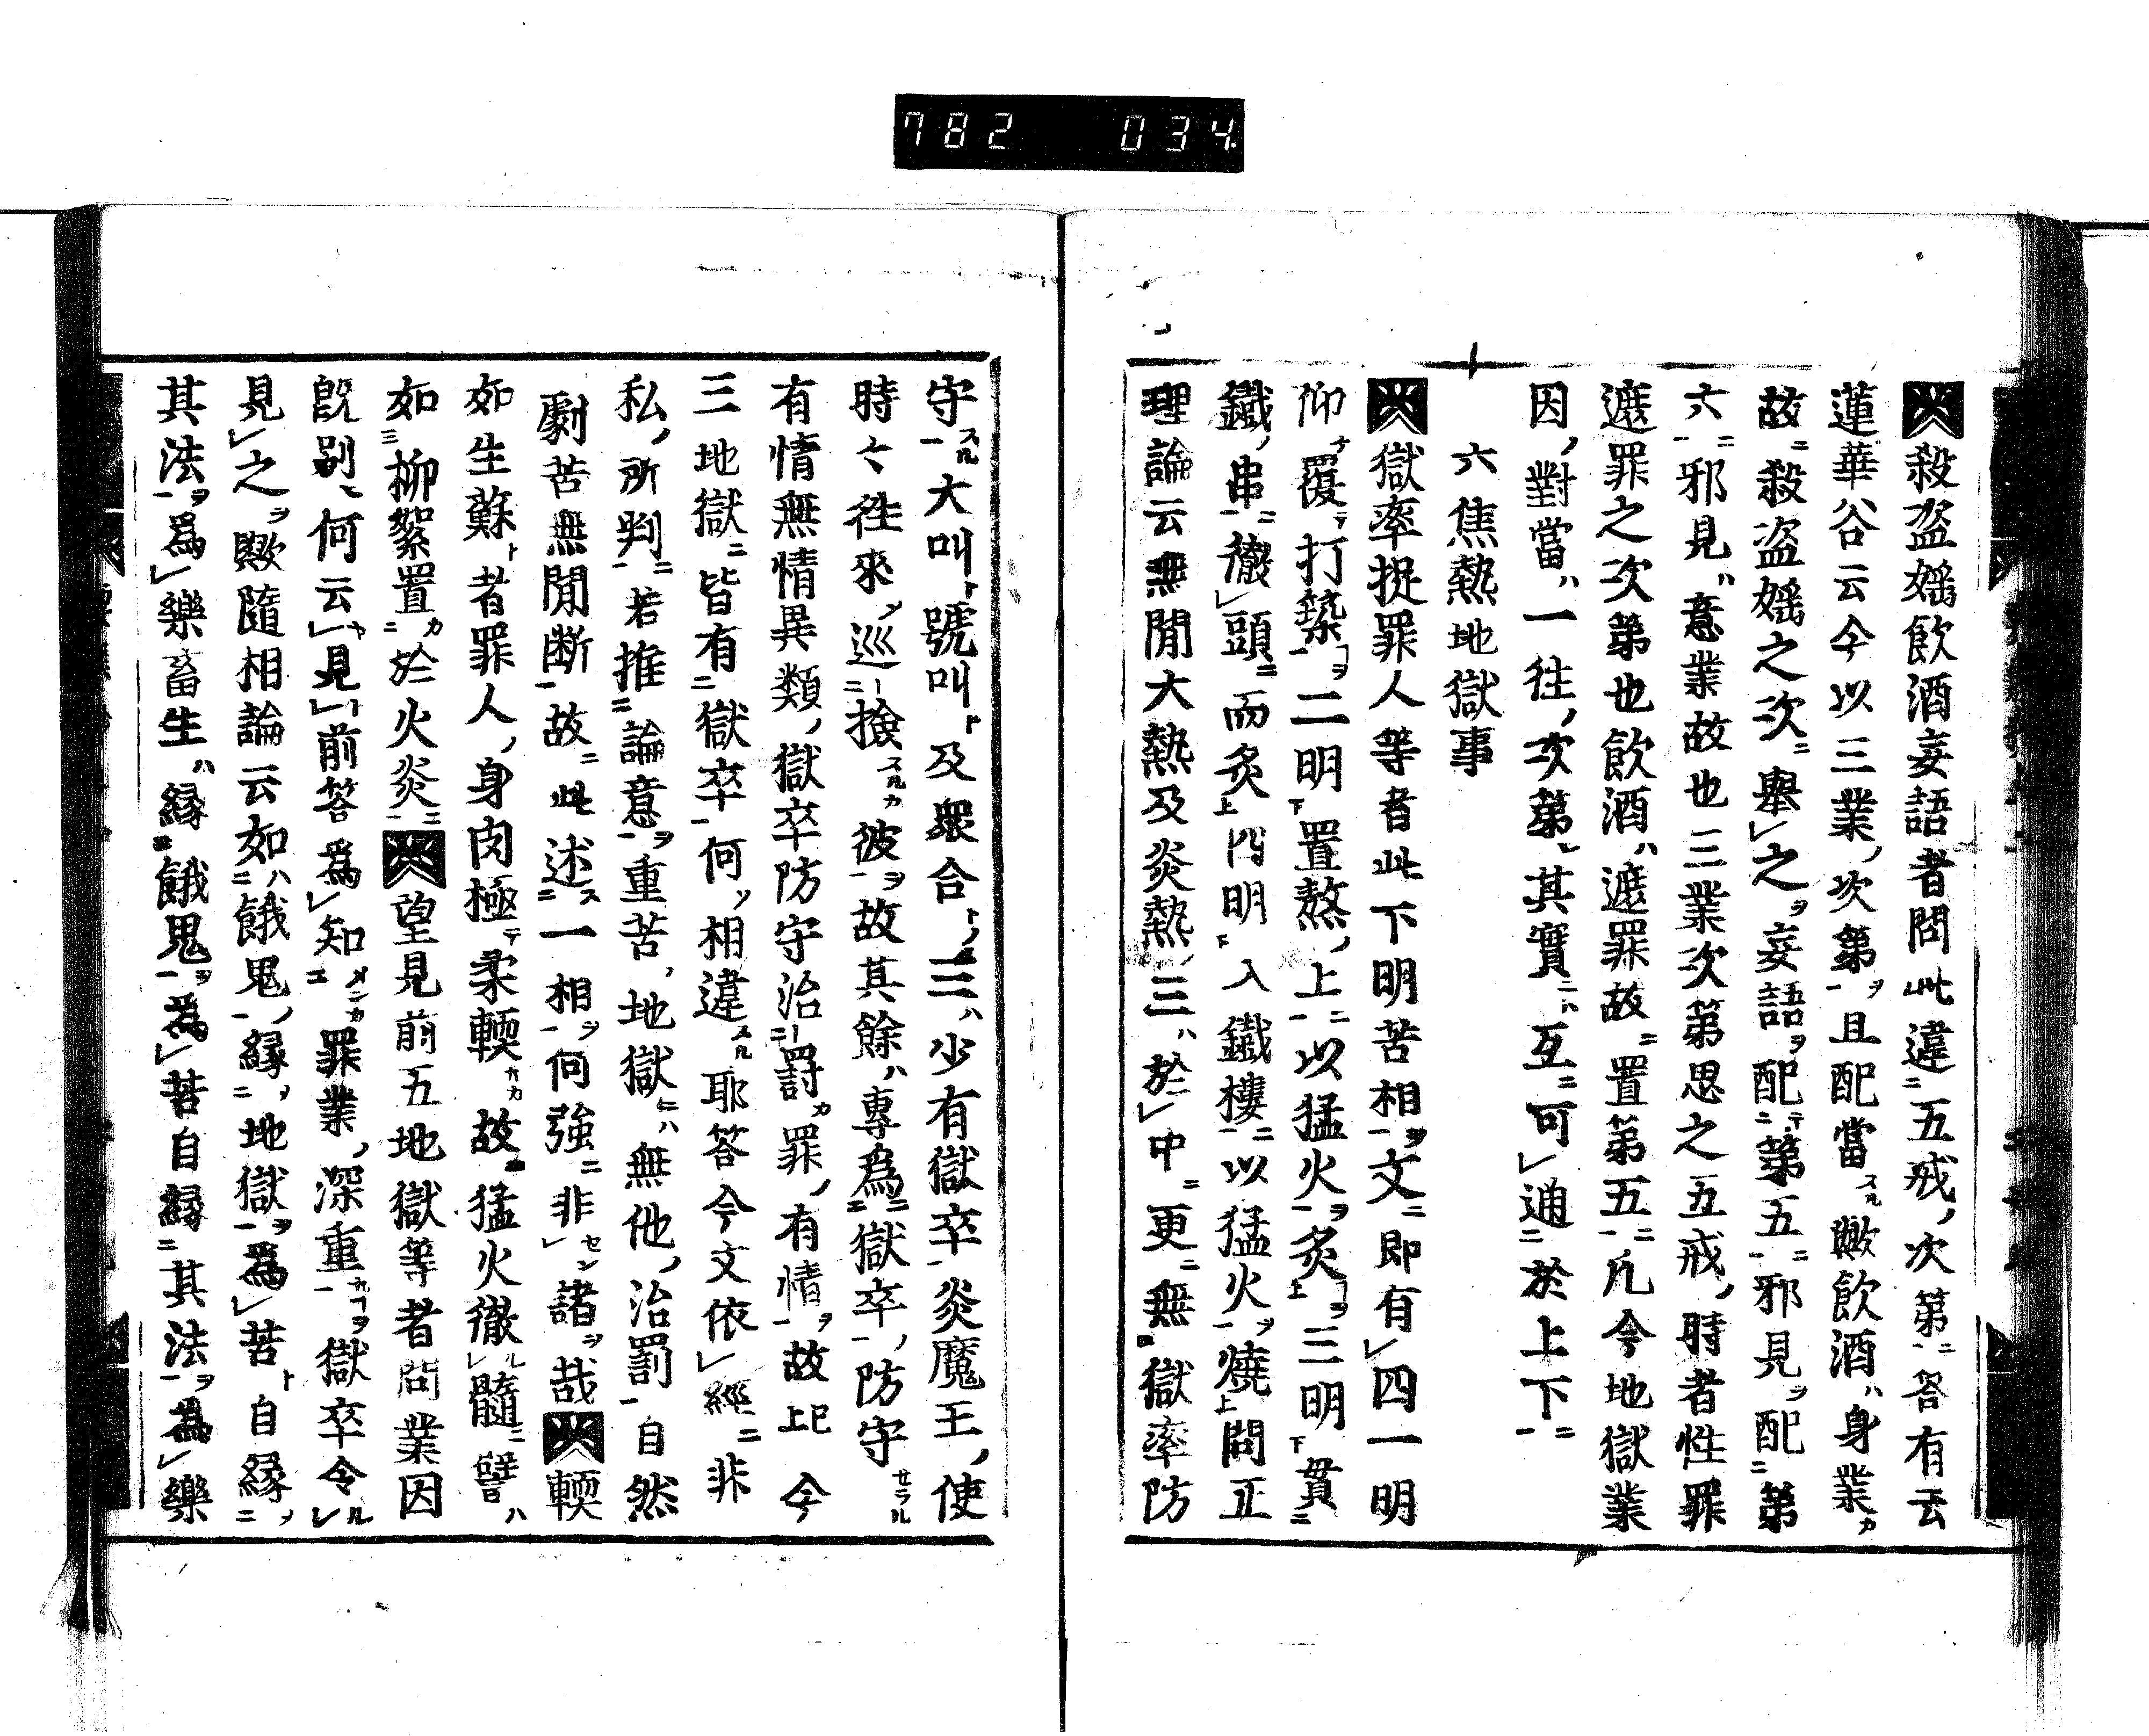 782 034
殺盗婬飲酒妄語者問此違五戒次第答有云
蓮華谷云今以三業次第且配當歟飲酒身業
故殺盗婬之次舉之妄語配第五邪見配第
六邪見意業故也三業次第思之五戒時者性罪
遮罪之次第也飲酒遮罪故置第五凡今地獄業
因對當一往次第其實互可通於上下
六焦熱地獄事
獄率捉罪人等者此下明苦相文即有四一明
仰覆打築二明置熬上以猛火炙三明貫
鐵串徹頭而炙四明入鐵樓以猛火燒問正
理論云無間大熱及炎熱三於中更無獄率防
守大叫號叫及衆合三少有獄卒炎魔王使
時々徃來巡撿彼故其餘專爲獄卒防守
有情無情異類獄卒防守治罰罪有情故已上今
三地獄皆有獄卒何相違耶答今文依經非
私所判若推論意重苦地獄無他治罰自然
劇苦無間断故此述一相何強非諸哉輭
如生蘇者罪人身肉極柔輭故猛火徹髓譬
如柳絮置於火炎望見前五地獄等者問業因
既別何云見前答爲知罪業深重獄卒令
見之歟隨相論云如餓鬼縁地獄爲苦自縁
其法爲樂畜生縁餓鬼為苦自縁其法為樂